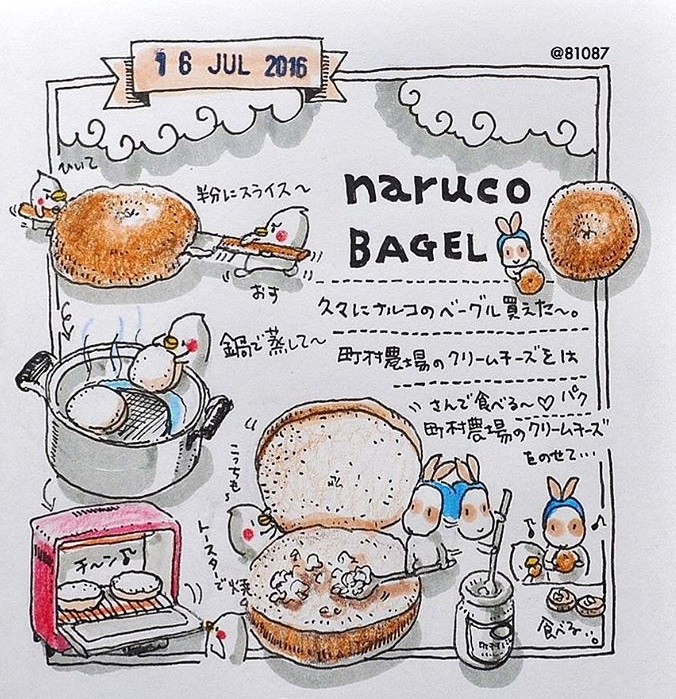 @81087
16 JUL 2016
ひいて
半分にスライス〜
おす
naruco
BAGEL
久々にナルコのベーグル買えた〜。
町村農場のクリームチーズをは
さんで食べる〜♡パク
鍋で蒸して〜
町村農場のクリームチーズ
をのせて…
こっちも〜
トースターで焼
チーン♪
食べる。。